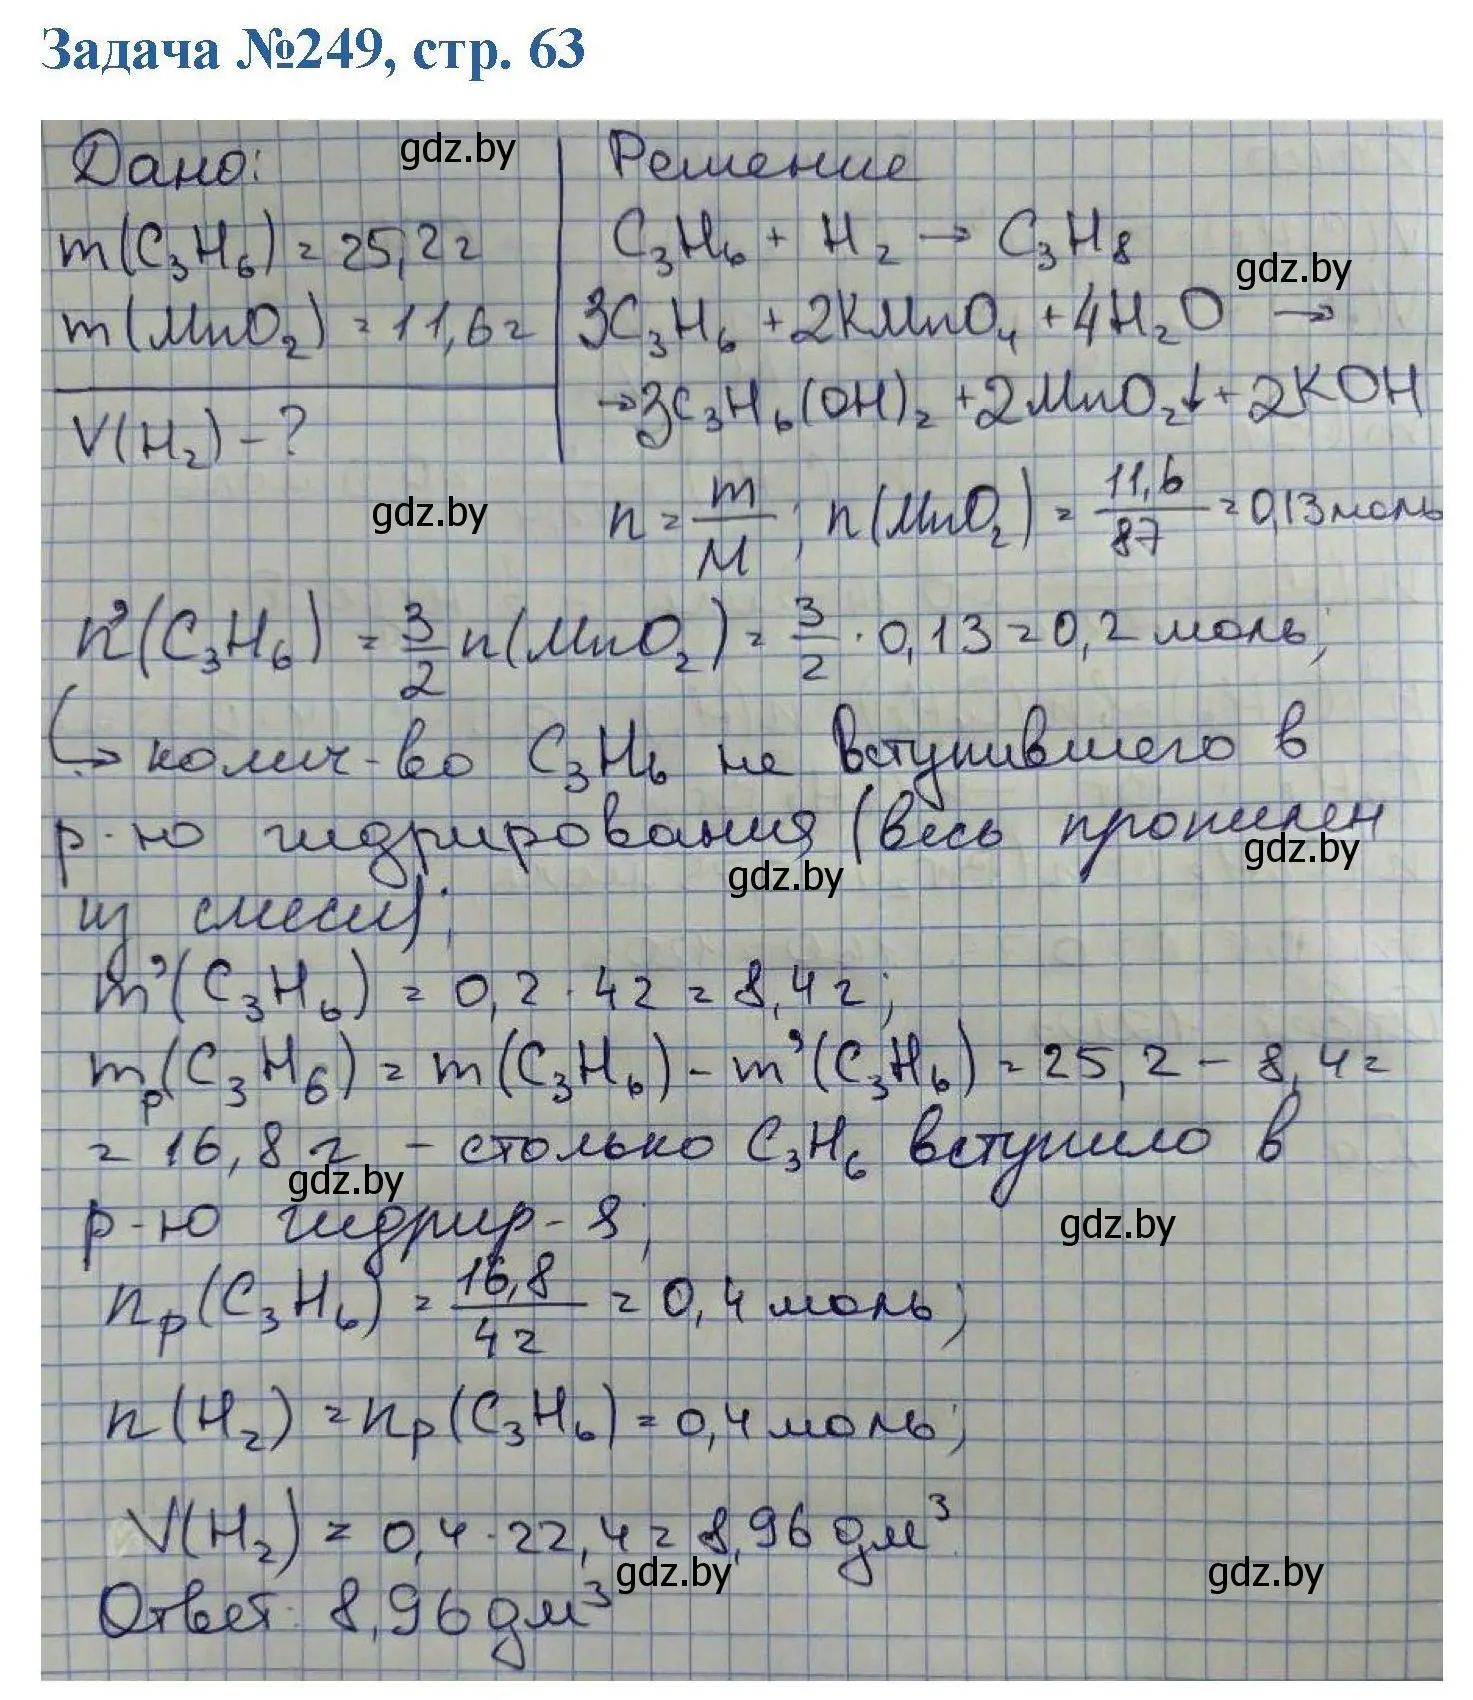 Задача №249, стр. 63
Дано:
gdz.by
Решение
m(C₃H₆) = 25,2г
C₃H₆ + H₂ → C₃H₈
gdz.by
m(MnO₂) = 11,6г
3C₃H₆ + 2KMnO₄ + 4H₂O →
→ 3C₃H₆(OH)₂ + 2MnO₂↓ + 2KOH
V(H₂) - ?
gdz.by
n = m/M ; n(MnO₂) = 11,6/87 = 0,13 моль
n'(C₃H₆) = 3/2 n(MnO₂) = 3/2 · 0,13 = 0,2 моль;
↳ колич-во C₃H₆ не вступившего в
р-ю гидрирования (весь пропилен
gdz.by
gdz.by
из смеси);
m'(C₃H₆) = 0,2 · 42 = 8,4г;
mр(C₃H₆) = m(C₃H₆) - m'(C₃H₆) = 25,2 - 8,4 =
= 16,8 г - столько C₃H₆ вступило в
gdz.by
р-ю гидрир-я;
gdz.by
nр(C₃H₆) = 16,8/42 = 0,4 моль;
n(H₂) = nр(C₃H₆) = 0,4 моль;
V(H₂) = 0,4 · 22,4 = 8,96 дм³
gdz.by
gdz.by
Ответ: 8,96 дм³